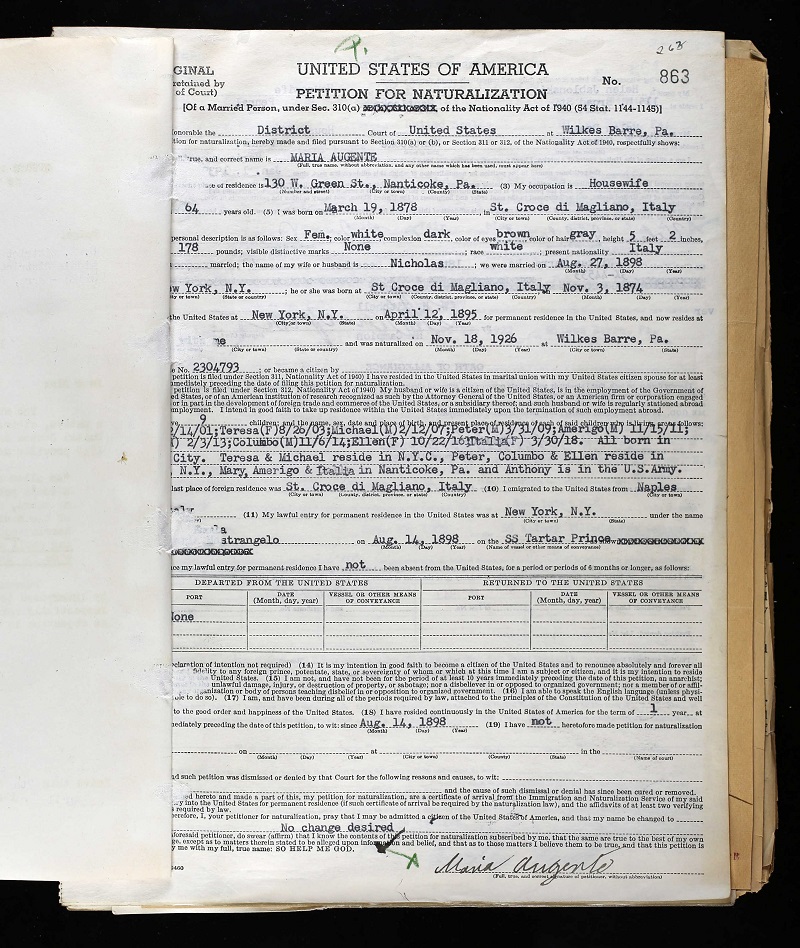 268
GINAL
UNITED STATES OF AMERICA
No. 863
retained by
of Court)
PETITION FOR NATURALIZATION
[Of a Married Person, under Sec. 310(a) of the Nationality Act of 1940 (54 Stat. 1144-1145)]
onorable the District Court of United States at Wilkes Barre, Pa.
tion for naturalization, hereby made and filed pursuant to Section 310(a) or (b), or Section 311 or 312, of the Nationality Act of 1940, respectfully shows:
true, and correct name is MARIA AUGENTE
(Full, true name, without abbreviation, and any other name which has been used, must appear here)
of residence is 130 W. Green St., Nanticoke, Pa. (3) My occupation is Housewife
(Number and street) (City or town) (County) (State)
64 years old. (5) I was born on March 19, 1878 in St. Croce di Magliano, Italy
(Month) (Day) (Year) (City or town) (County, district, province, or state) (Country)
personal description is as follows: Sex Fem. color white complexion dark color of eyes brown color of hair gray, height 5 feet 2 inches,
178 pounds; visible distinctive marks None ; race white ; present nationality Italy
married; the name of my wife or husband is Nicholas ; we were married on Aug. 27, 1898
(Month) (Day) (Year)
ew York, N.Y. ; he or she was born at St Croce di Magliano, Italy Nov. 3, 1874
(City or town) (State or country) (City or town) (County, district, province, or state) (Country) (Month) (Day) (Year)
the United States at New York, N.Y. on April 12, 1895 for permanent residence in the United States, and now resides at
(City or town) (State) (Month) (Day) (Year)
me and was naturalized on Nov. 18, 1926 at Wilkes Barre, Pa.
(City or town) (State or country) (Month) (Day) (Year) (City or town) (State)
No. 2304793 ; or became a citizen by
petition is filed under Section 311, Nationality Act of 1940) I have resided in the United States in marital union with my United States citizen spouse for at least
mmediately preceding the date of filing this petition for naturalization.
petition is filed under Section 312, Nationality Act of 1940) My husband or wife is a citizen of the United States, is in the employment of the Government of
ed States, or of an American institution of research recognized as such by the Attorney General of the United States, or an American firm or corporation engaged
or in part in the development of foreign trade and commerce of the United States, or a subsidiary thereof; and such husband or wife is regularly stationed abroad
employment. I intend in good faith to take up residence within the United States immediately upon the termination of such employment abroad.
9 children; and the name, sex, date and place of birth, and present place of residence of each of said children who is living are as follows:
/14/01; Teresa(F)8/26/03;Michael(M)2/12/07;Peter(M)3/31/09;Amerigo(M) 11/15/11;
) 2/3/13;Columbo(M)11/6/14;Ellen(F) 10/22/16;Italia(F) 3/30/18. All born in
City. Teresa & Michael reside in N.Y.C., Peter, Columbo & Ellen reside in
N.Y., Mary, Amerigo & Italia in Nanticoke, Pa. and Anthony is in the U.S.Army.
last place of foreign residence was St. Croce di Magliano, Italy (10) I emigrated to the United States from Naples
(City or town) (County, district, province, or state) (Country) (City or town)
(11) My lawful entry for permanent residence in the United States was at New York, N.Y. under the name
(City or town) (State)
a
strangelo on Aug. 14, 1898 on the SS Tartar Prince
(Month) (Day) (Year) (Name of vessel or other means of conveyance)
ce my lawful entry for permanent residence I have not been absent from the United States, for a period or periods of 6 months or longer, as follows:
DEPARTED FROM THE UNITED STATES RETURNED TO THE UNITED STATES
PORT DATE (Month, day, year) VESSEL OR OTHER MEANS OF CONVEYANCE PORT DATE (Month, day, year) VESSEL OR OTHER MEANS OF CONVEYANCE
None
eclaration of intention not required) (14) It is my intention in good faith to become a citizen of the United States and to renounce absolutely and forever all
fidelity to any foreign prince, potentate, state, or sovereignty of whom or which at this time I am a subject or citizen, and it is my intention to reside
United States. (15) I am not, and have not been for the period of at least 10 years immediately preceding the date of this petition, an anarchist;
unlawful damage, injury, or destruction of property, or sabotage; nor a disbeliever in or opposed to organized government; nor a member of or affil-
ganization or body of persons teaching disbelief in or opposition to organized government. (16) I am able to speak the English language (unless physi-
ble to do so). (17) I am, and have been during all of the periods required by law, attached to the principles of the Constitution of the United States and well
to the good order and happiness of the United States. (18) I have resided continuously in the United States of America for the term of 1 year at
mediately preceding the date of this petition, to wit: since Aug. 14, 1898 (19) I have not heretofore made petition for naturalization
(Month) (Day) (Year)
on at in the
(Month) (Day) (Year) (City or town) (County) (State) (Name of court)
nd such petition was dismissed or denied by that Court for the following reasons and causes, to wit:
and the cause of such dismissal or denial has since been cured or removed.
ed hereto and made a part of this, my petition for naturalization, are a certificate of arrival from the Immigration and Naturalization Service of my said
ry into the United States for permanent residence (if such certificate of arrival be required by the naturalization law), and the affidavits of at least two verifying
s required by law.
herefore, I, your petitioner for naturalization, pray that I may be admitted a citizen of the United States of America, and that my name be changed to
No change desired
aforesaid petitioner, do swear (affirm) that I know the contents of this petition for naturalization subscribed by me, that the same are true to the best of my own
ge, except as to matters therein stated to be alleged upon information and belief, and that as to those matters I believe them to be true, and that this petition is
y me with my full, true name: SO HELP ME GOD.
X
Maria Augente
(Full, true, and correct signature of petitioner, without abbreviation)